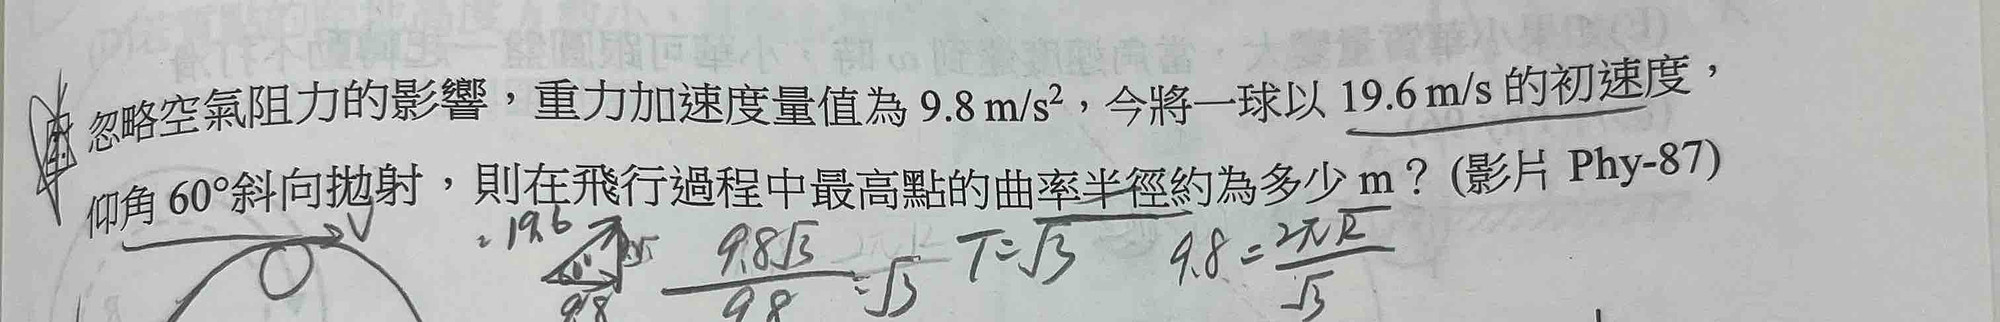 忽略空氣阻力的影響，重力加速度量值為 9.8 m/s²，今將一球以 19.6 m/s 的初速度，
仰角 60°斜向拋射，則在飛行過程中最高點的曲率半徑約為多少 m？(影片 Phy-87)
V
19.6
9.8
9.8√3 / 9.8 = √3
T=√3
9.8 = 2πR / √3